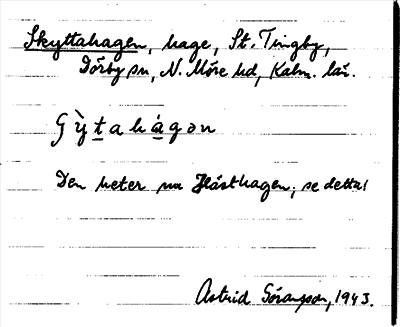 Skyttahagen, hage, St. Tingby,
Dörby sn, N. Möre hd, Kalm. län.
Den heter nu Hästhagen; se detta!
Astrid Göransson, 1943.